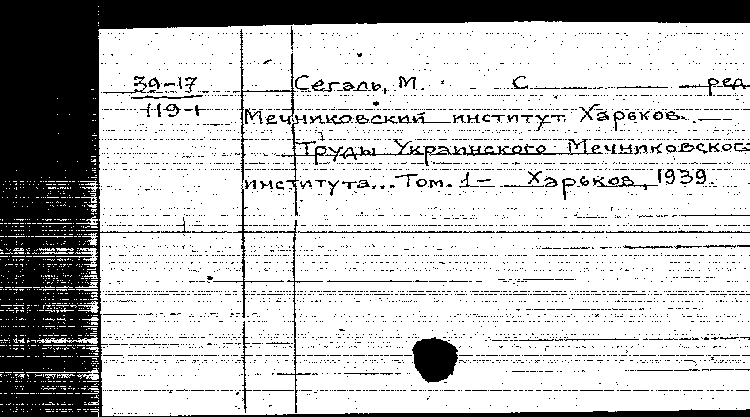 39-17
119-1
Сегаль, М. С. ред
Мечниковский институт. Харьков.
Труды Украинского Мечниковског
института... Том. 1- Харьков, 1939.